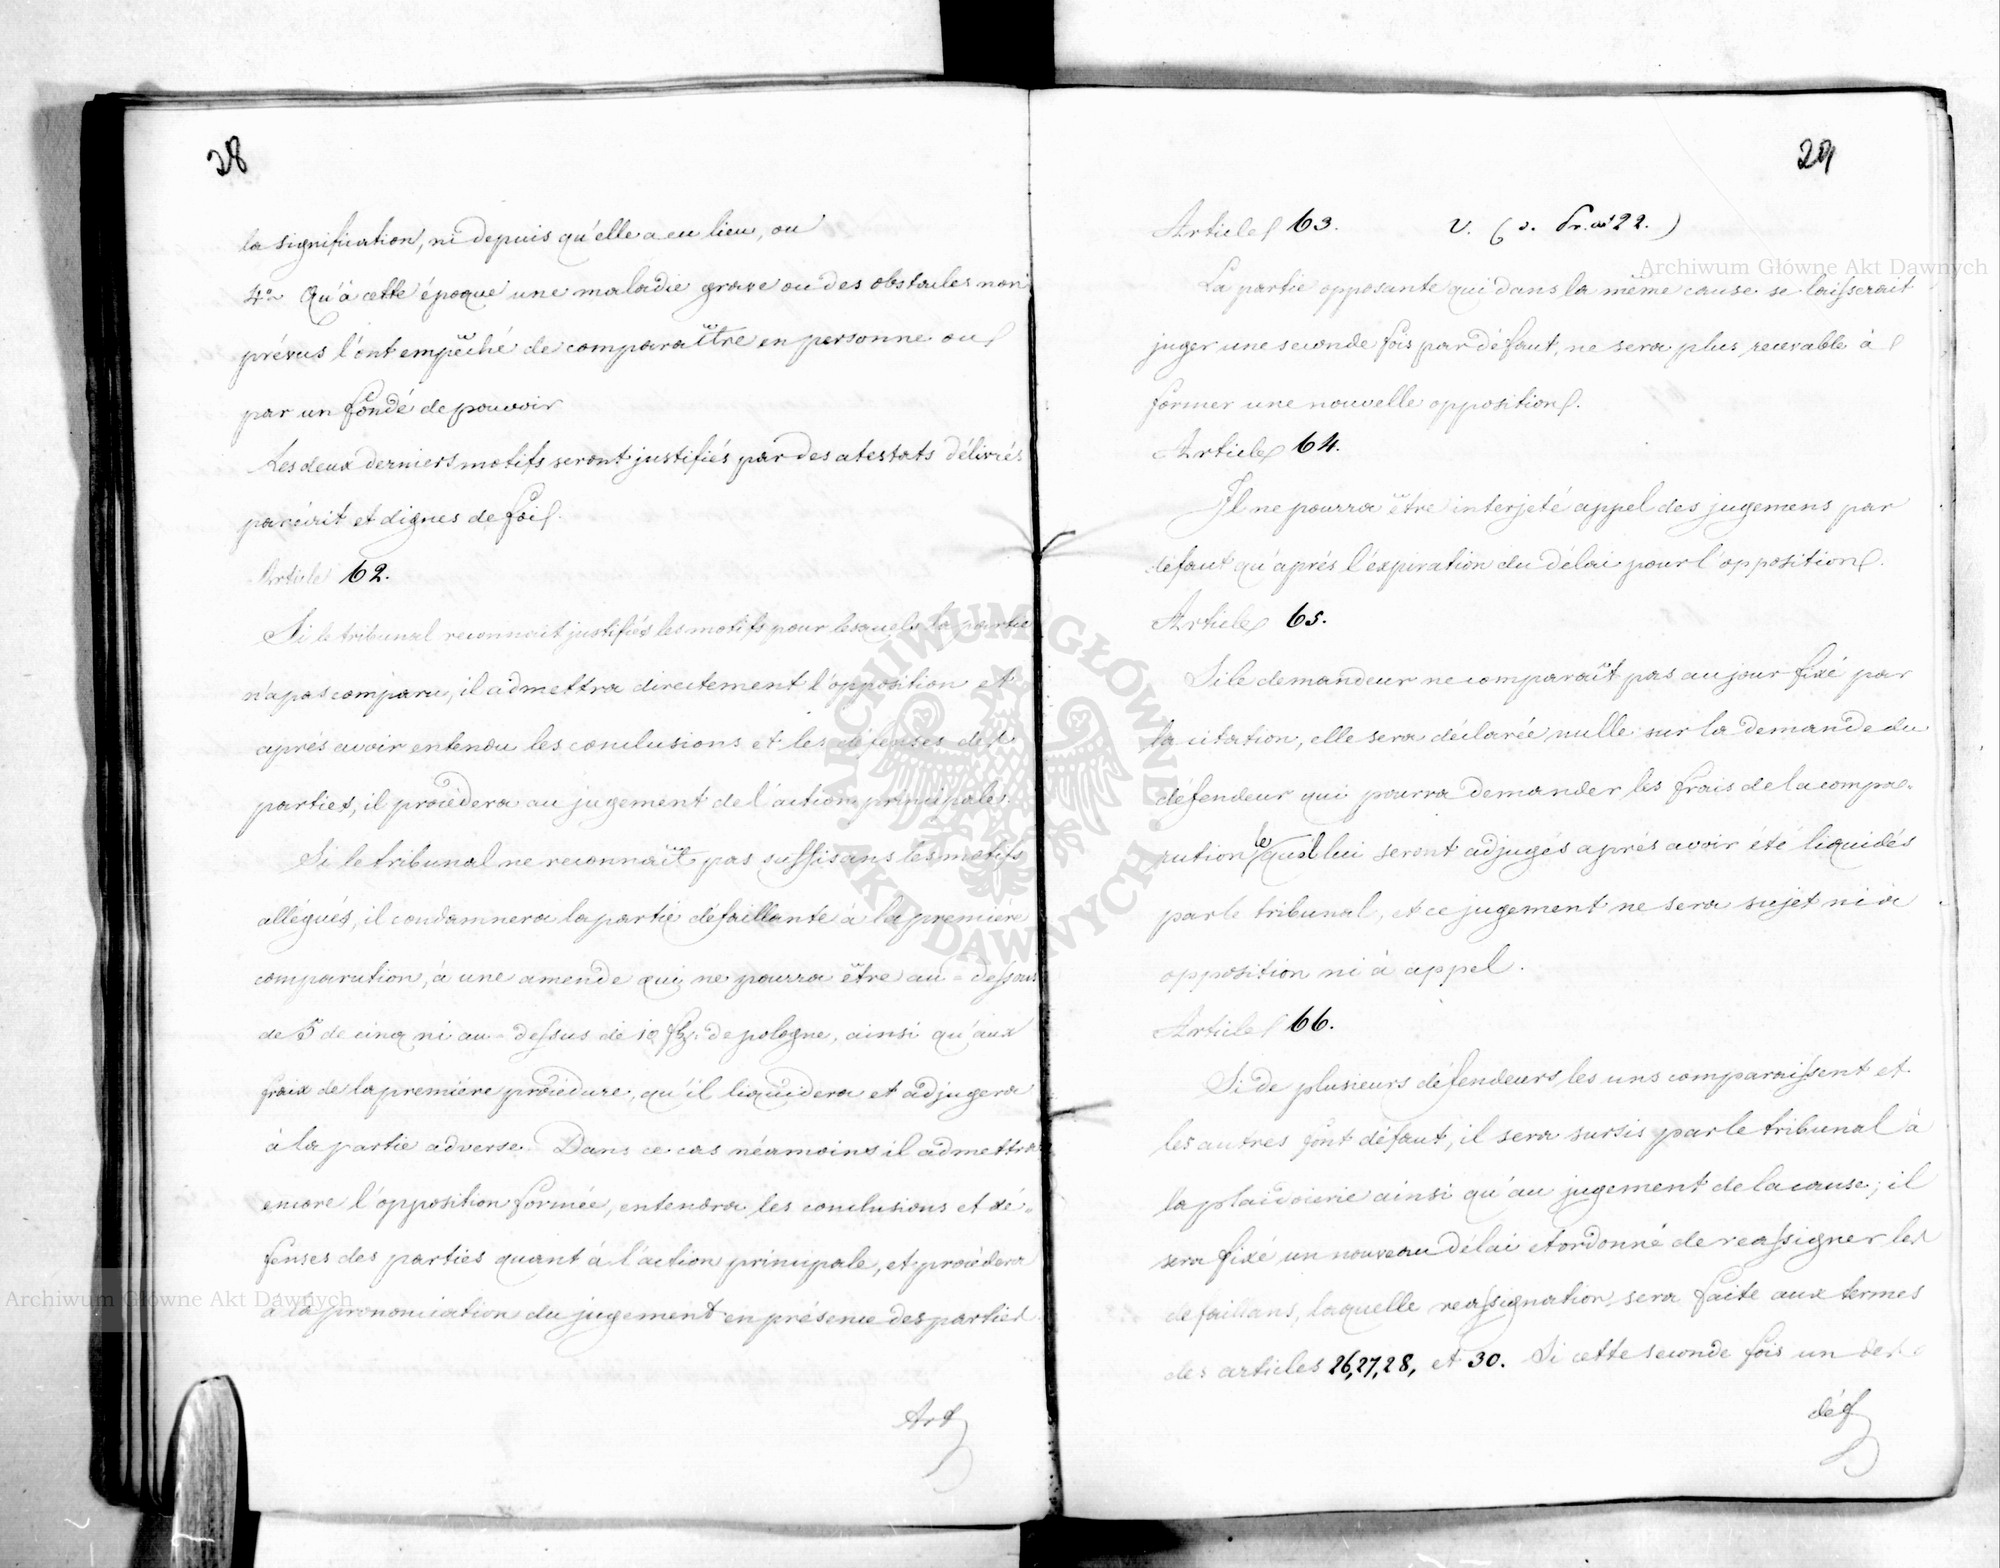 28
la signification, ni depuis qu'elle a eu lieu, ou
4° Qu'à cette époque une maladie grave ou des obstacles non
prévus l'ont empêché de comparaître en personne ou
par un fondé de pouvoir
Les deux derniers motifs seront justifiés par des atestats délivrés
par écrit et dignes de foi.
Article 62.
Si le tribunal reconnait justifiés les motifs pour lesquels la partie
n'a pas comparu, il admettra directement l'opposition et
aprés avoir entendu les conclusions et les défenses des
parties, il procédera au jugement de l'action principale.
Si le tribunal ne reconnaît pas suffisans les motifs
allégués, il condamnera la partie défaillante à la premiére
comparution, à une amende qui ne pourra être au-dessous
de 5 de cinq ni au-dessus de 10 flz: de pologne, ainsi qu'aux
fraix de la premiére procédure, qu'il liquidera et adjugera
à la partie adverse. Dans ce cas néamoins il admettra
encore l'opposition formée, entendra les conclusions et dé-
fenses des parties quant à l'action principale, et procédera
à la prononciation du jugement en présence des parties
Art
29
Article 63. V. (v. Pr. art 22.)
La partie opposante qui dans la même cause se laisserait
juger une seconde fois par défaut, ne sera plus recevable à
former une nouvelle opposition.
Article 64.
Il ne pourra être interjeté appel des jugemens par
défaut qu'aprés l'expiration du délai pour l'opposition.
Article 65.
Si le demandeur ne comparaît pas au jour fixé par
la citation, elle sera déclarée nulle sur la demande du
défendeur qui pourra demander les frais de la compa-
rution lequel lui seront adjugés aprés avoir été liquidés
par le tribunal, et ce jugement ne sera sujet ni à
opposition ni à appel.
Article 66.
Si de plusieurs défendeurs les uns comparaissent et
les autres font défaut, il sera sursis par le tribunal à
la plaidoierie ainsi qu'au jugement de la cause; il
sera fixé un nouveau délai et ordonné de reassigner les
defaillans, laquelle reassignation sera faite aux termes
des articles 26, 27, 28, et 30. Si cette seconde fois un des
déf
Archiwum Główne Akt Dawnych
Archiwum Główne Akt Dawnych
ARCHIWUM GŁÓWNE AKT DAWNYCH